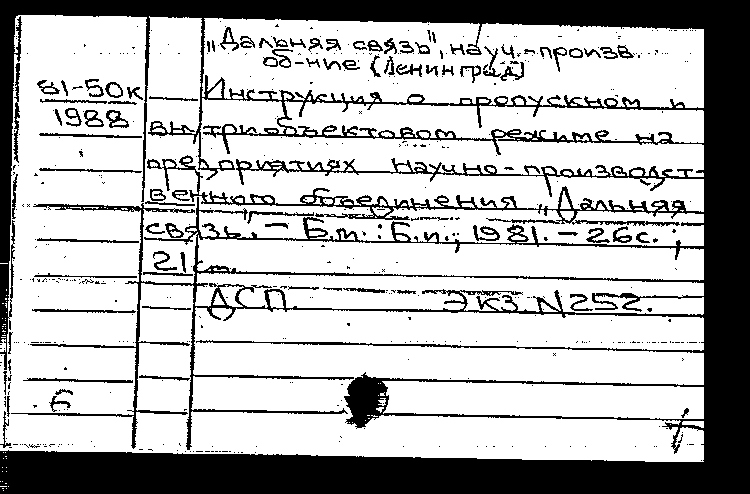 „Дальняя связь", науч.-произв.
об-ние (Ленинград)
81-50к
1988
Инструкция о пропускном и
внутриобъектовом режиме на
предприятиях научно-производст-
венного объединения „Дальняя
связь". - Б.м. : Б.и., 1981. - 26с. ;
21см.
ДСП. Экз. N252.
6